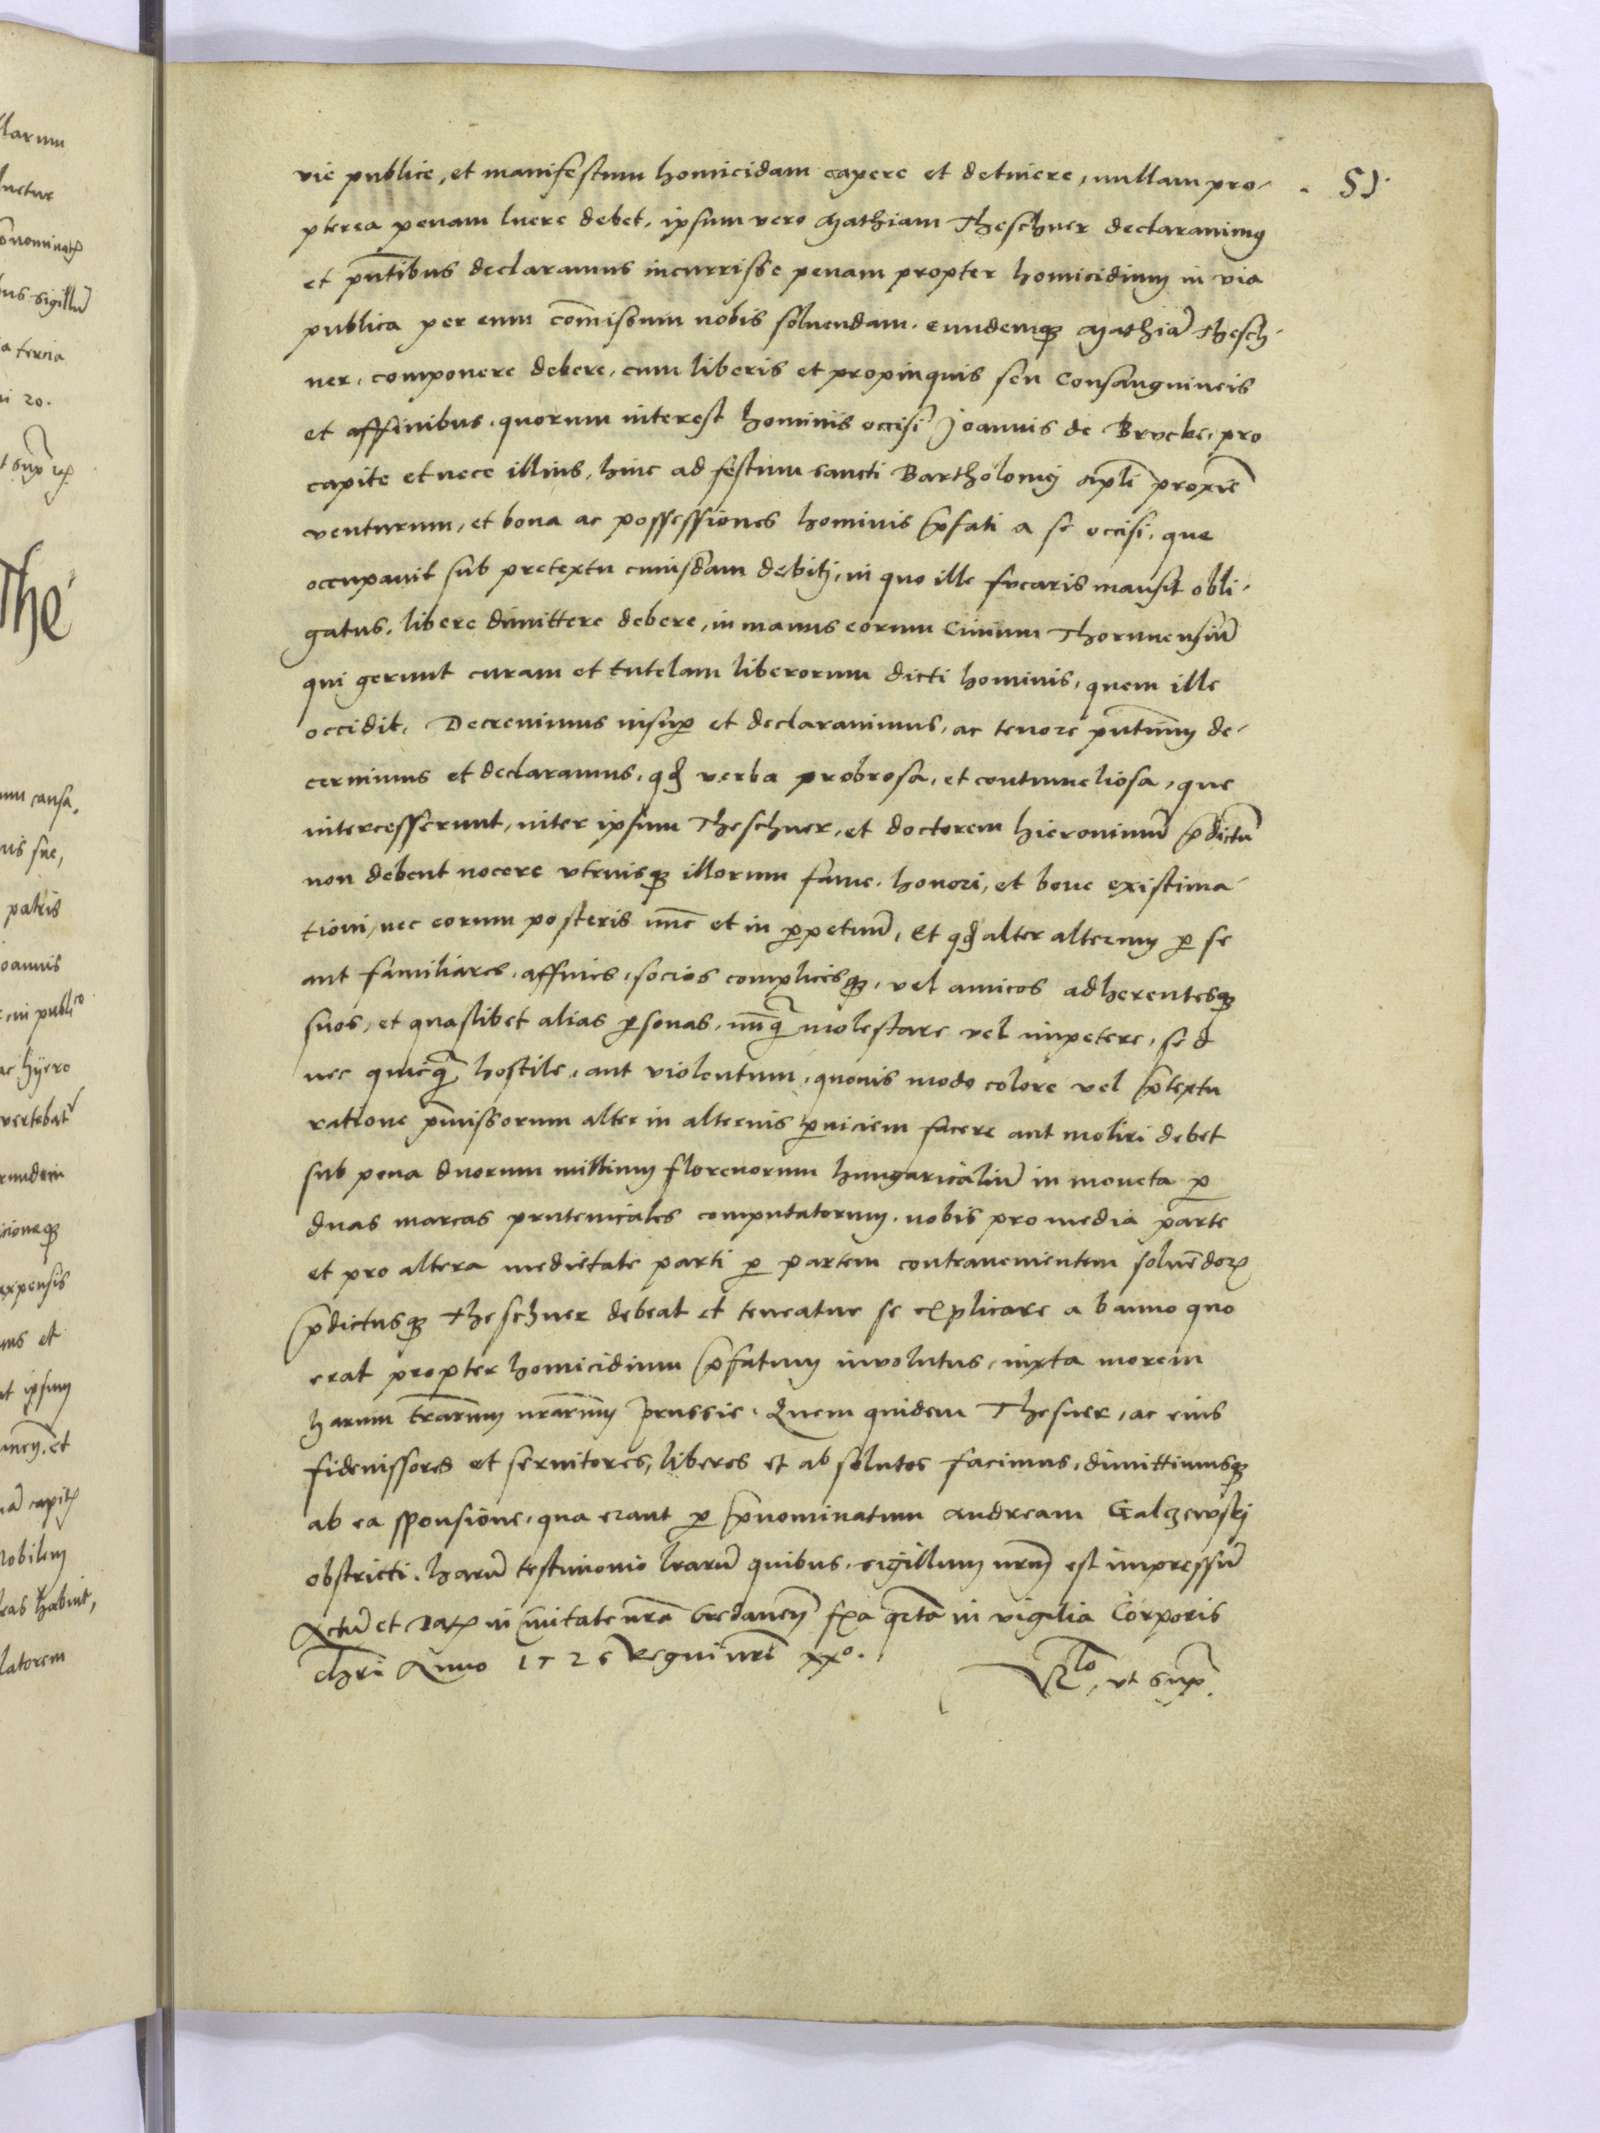 vie publice, et manifestum homicidam capere et detinere, nullam pro-
pterea penam luere debet. ipsum vero Mathiam Theschner declaravimus
et pntibus declaramus incurrisse penam propter homicidium in via
publica per eum comissum nobis solvendam. eundemque Mathia Thesch-
ner, componere debere, cum liberis et propinquis seu Consanguineis
et affinibus. quorum interest hominis occisi Joannis de Brucke, pro
capite et nece illius, hinc ad festum sancti Bartholomei apli proxie
venturum, et bona ac possessiones hominis pfati a se occisi, que
occupavit sub pretextu cuiusdam debiti, in quo ille fucaris mansit obli-
gatus, libere dimittere debere, in manus eorum Civium Thorunensiu
qui gerunt curam et tutelam liberorum dicti hominis, quem ille
occidit. Decrevimus insup et declaravimus, ac tenore pntium de-
cernimus et declaramus, qd verba probrosa, et contumeliosa, que
intercesserunt, inter ipsum Theschner, et doctorem hieronimu pdictu
non debent nocere utriusque illorum fame, honori, et bone existima-
tioni, nec eorum posteris nunc et in ppetuu, Et qd alter alterum p se
aut familiares, affines, socios complicesque, vel amicos adherentesque
suos, et quaslibet alias psonas, nunq molestare vel impetere, sed
nec quicq hostile, aut violentum, quovis modo colore vel ptextu
ratione pmissorum alter in alterius pniciem facere aut moliri debet
sub pena duorum millium florenorum hungaricaliu in moneta p
duas marcas prutenicales computatorum, nobis pro media parte
et pro altera medietate parti p partem contravenientem solvedor
pdictusque Theschner debeat et teneatur se explicare a banno quo
erat propter homicidium pfatum involutus, iuxta morem
harum trarum nrarum Prussie. Quem quidem Thesner, ac eius
fideiussores et servitores, liberos et absolutos facimus, dimittimusque
ab ea sponsione, qua erant p pnominatum Andream Galczewski
obstricti. haru testimonio lraru quibus, sigillum nrm est impressu
Actu et Dat in Civitate nra Gedaneń fia qrta in vigilia Corporis
Chri Anno 1526 Regni nri xxo.
ut sup
51